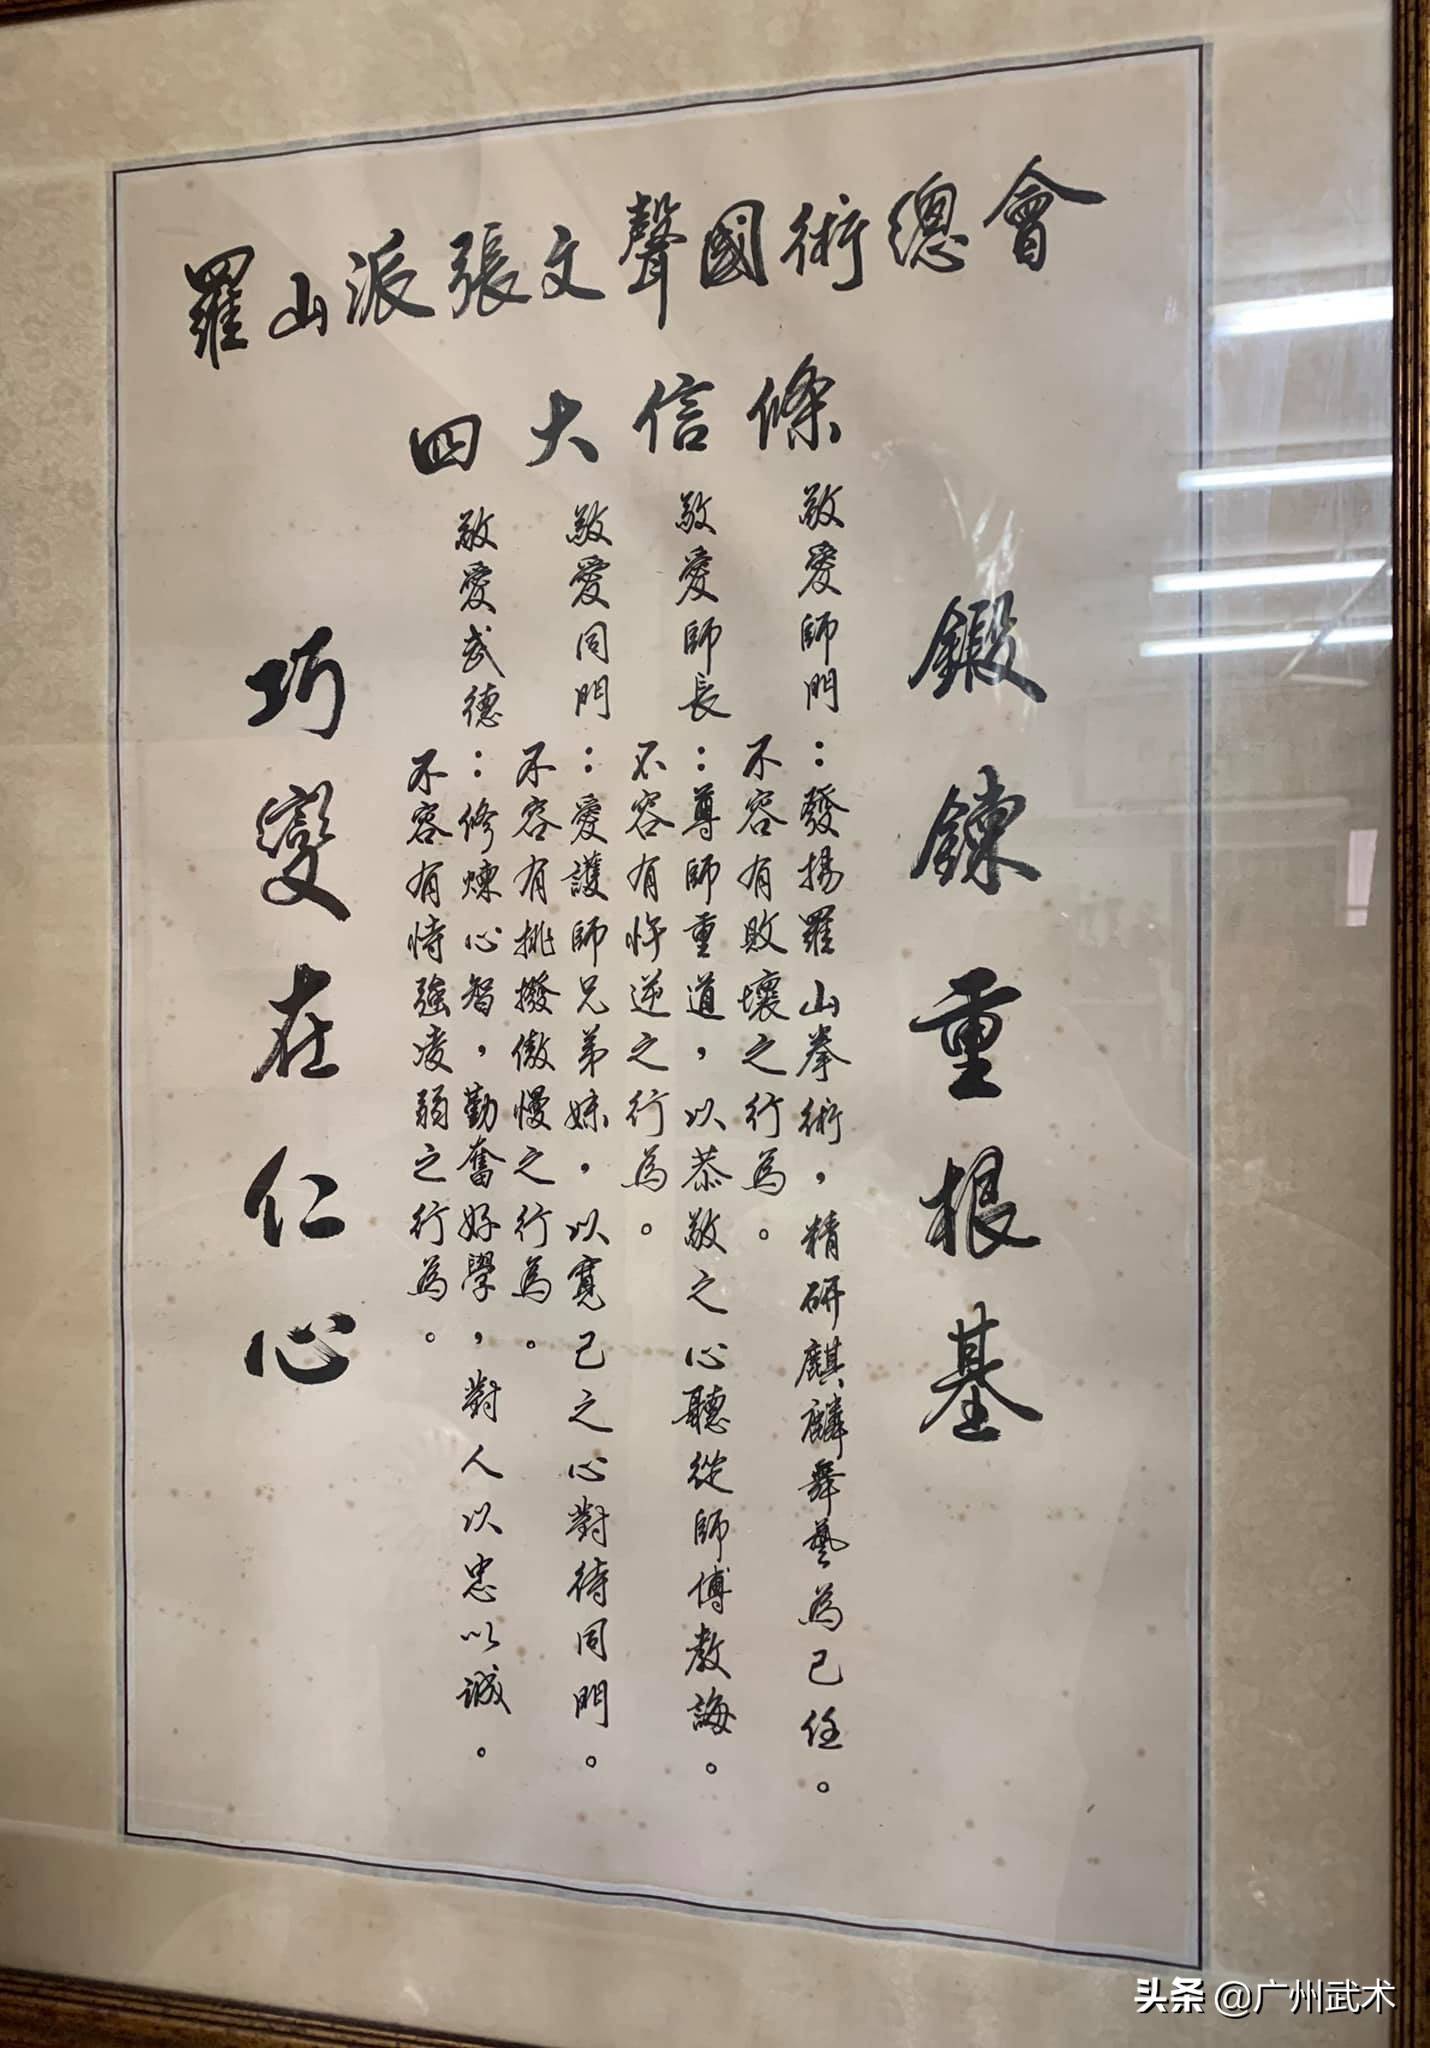 羅山派張文聲國術總會
四大信條
鍛鍊重根基
敬愛師門：發揚羅山拳術，精研麒麟舞藝為己任。
不容有敗壞之行為。
敬愛師長：尊師重道，以恭敬之心聽從師傅教誨。
不容有忤逆之行為。
敬愛同門：愛護師兄弟妹，以寬己之心對待同門。
不容有挑撥傲慢之行為。
敬愛武德：修煉心智，勤奮好學，對人以忠以誠。
不容有恃強凌弱之行為。
巧變在仁心
头条 @广州武术